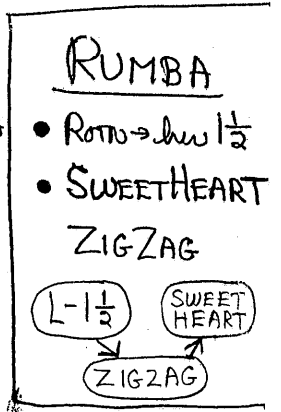 RUMBA
• ROTN → her 1½
• SWEETHEART
ZIGZAG
L-1½
SWEET
HEART
ZIGZAG